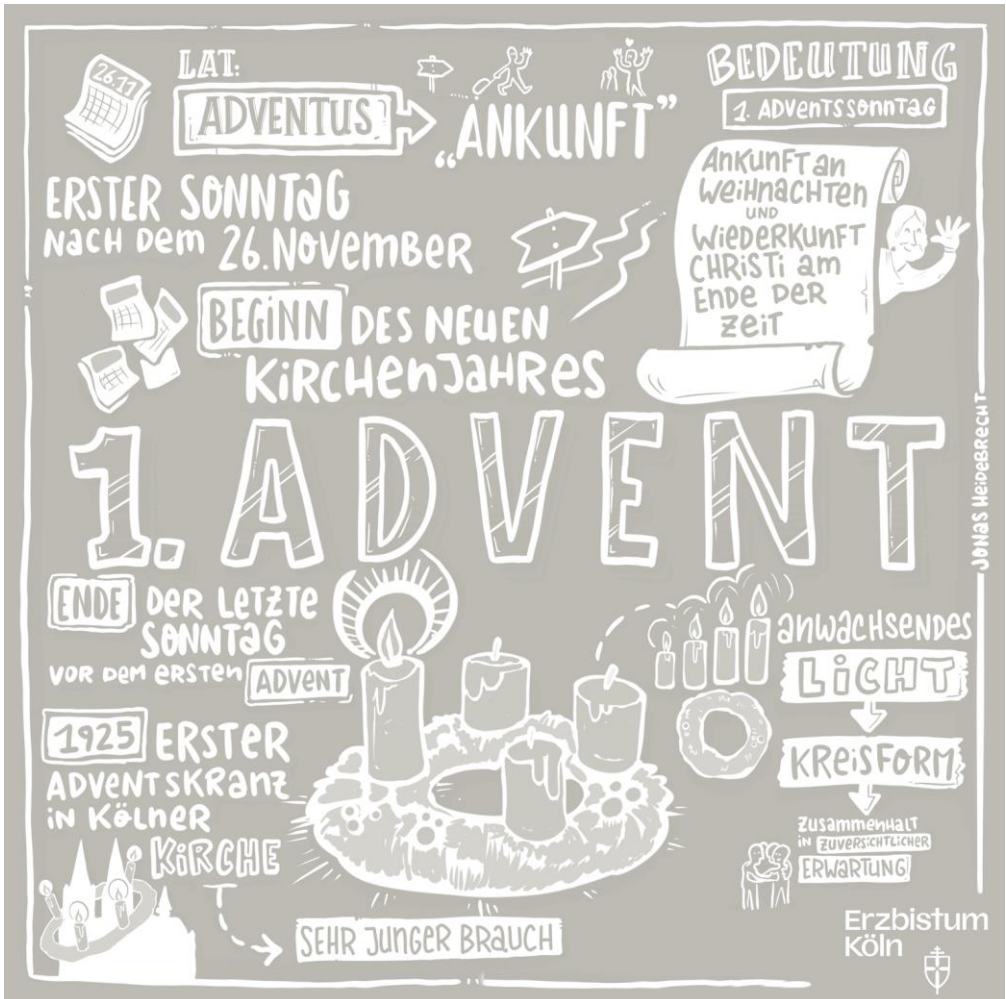 26.11
LAT:
ADVENTUS
„ANKUNFT”
ERSTER SONNTAG
NACH DEM 26. NOVEMBER
BEGINN DES NEUEN
KIRCHENJAHRES
BEDEUTUNG
1. ADVENTSSONNTAG
ANKUNFT AN
WEIHNACHTEN
UND
WIEDERKUNFT
CHRISTI AM
ENDE DER
ZEIT
1. ADVENT
JONAS HEIDEBRECHT
ENDE DER LETZTE
SONNTAG
VOR DEM ERSTEN ADVENT
1925 ERSTER
ADVENTSKRANZ
IN KÖLNER
KIRCHE
SEHR JUNGER BRAUCH
ANWACHSENDES
LICHT
KREISFORM
ZUSAMMENHALT
IN ZUVERSICHTLICHER
ERWARTUNG
Erzbistum
Köln